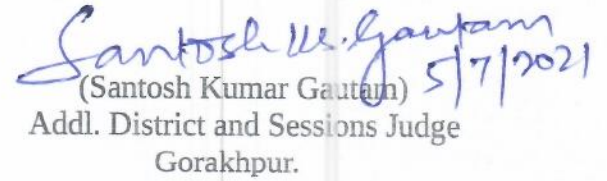 Santosh Kr. Gautam
5/7/2021
(Santosh Kumar Gautam)
Addl. District and Sessions Judge
Gorakhpur.